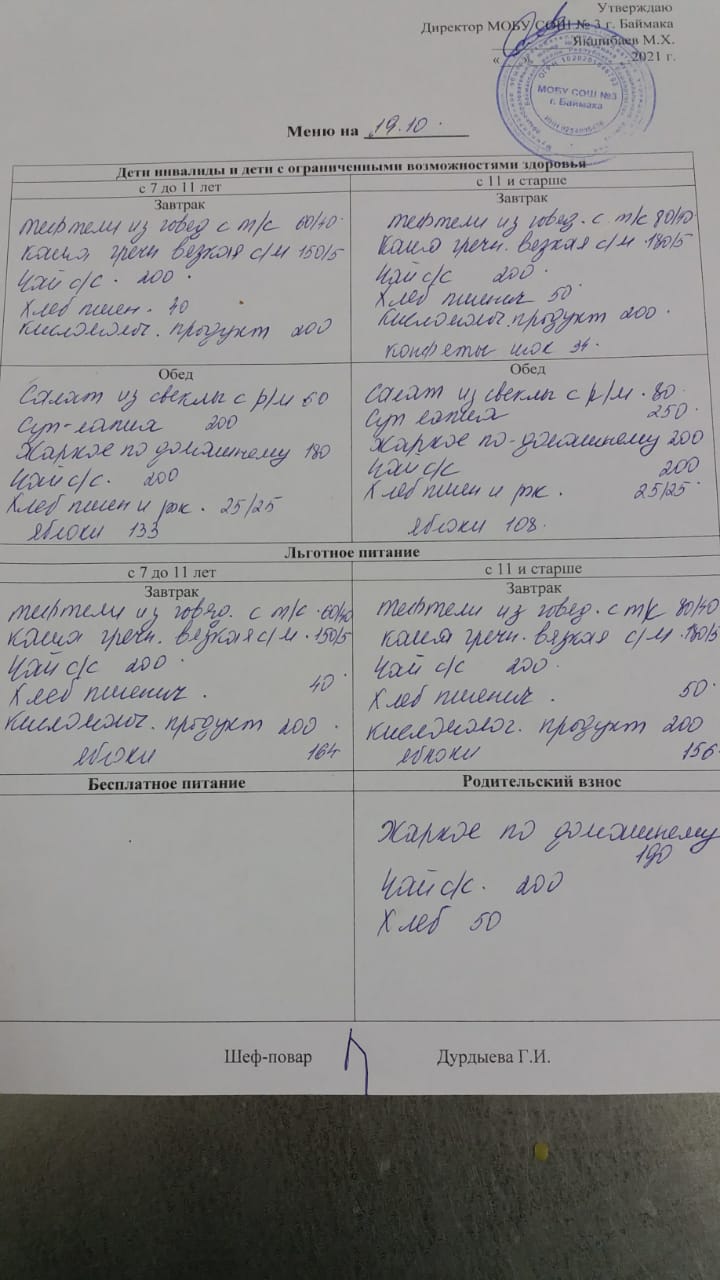 Утверждаю
Директор МОБУ СОШ № 3 г. Баймака
Якшибаев М.Х.
« » 2021 г.
МОБУ СОШ №3
г. Баймака
Меню на 19.10.
Дети инвалиды и дети с ограниченными возможностями здоровья
с 7 до 11 лет
Завтрак
тефтели из говед с т/с 60/40.
каша гречн вязкая с/м 150/5
Чай с/с. 200.
Хлеб пшен. 40
кисломолоч. продукт 200
Обед
Салат из свеклы с р/м 60
Суп-лапша 200
Жаркое по домашнему 180
Чай с/с. 200
Хлеб пшен и рж. 25/25
Яблоки 133
с 11 и старше
Завтрак
тефтели из говед. с т/с 80/40
Каша гречн. вязкая с/м 180/5
Чай с/с 200.
Хлеб пшенич 50.
кисломолоч. продукт 200.
конфеты шок 34.
Обед
Салат из свеклы с р/м. 80.
Суп лапша 250.
Жаркое по-домашнему 200
Чай с/с 200
Хлеб пшен и рж. 25/25.
Яблоки 108.
Льготное питание
с 7 до 11 лет
Завтрак
тефтели из говяд. с т/с. 60/40
каша гречн. вязкая с/м. 150/5
Чай с/с 200.
Хлеб пшенич. 40.
кисломолоч. продукт 200.
яблоки 164
с 11 и старше
Завтрак
тефтели из говед. с т/с 80/40
каша гречн. вязкая с/м. 180/5
Чай с/с 200.
Хлеб пшенич. 50.
кисломолоч. продукт 200
яблоки 156.
Бесплатное питание
Родительский взнос
Жаркое по домашнему
190
Чай с/с. 200
Хлеб 50
Шеф-повар Дурдыева Г.И.